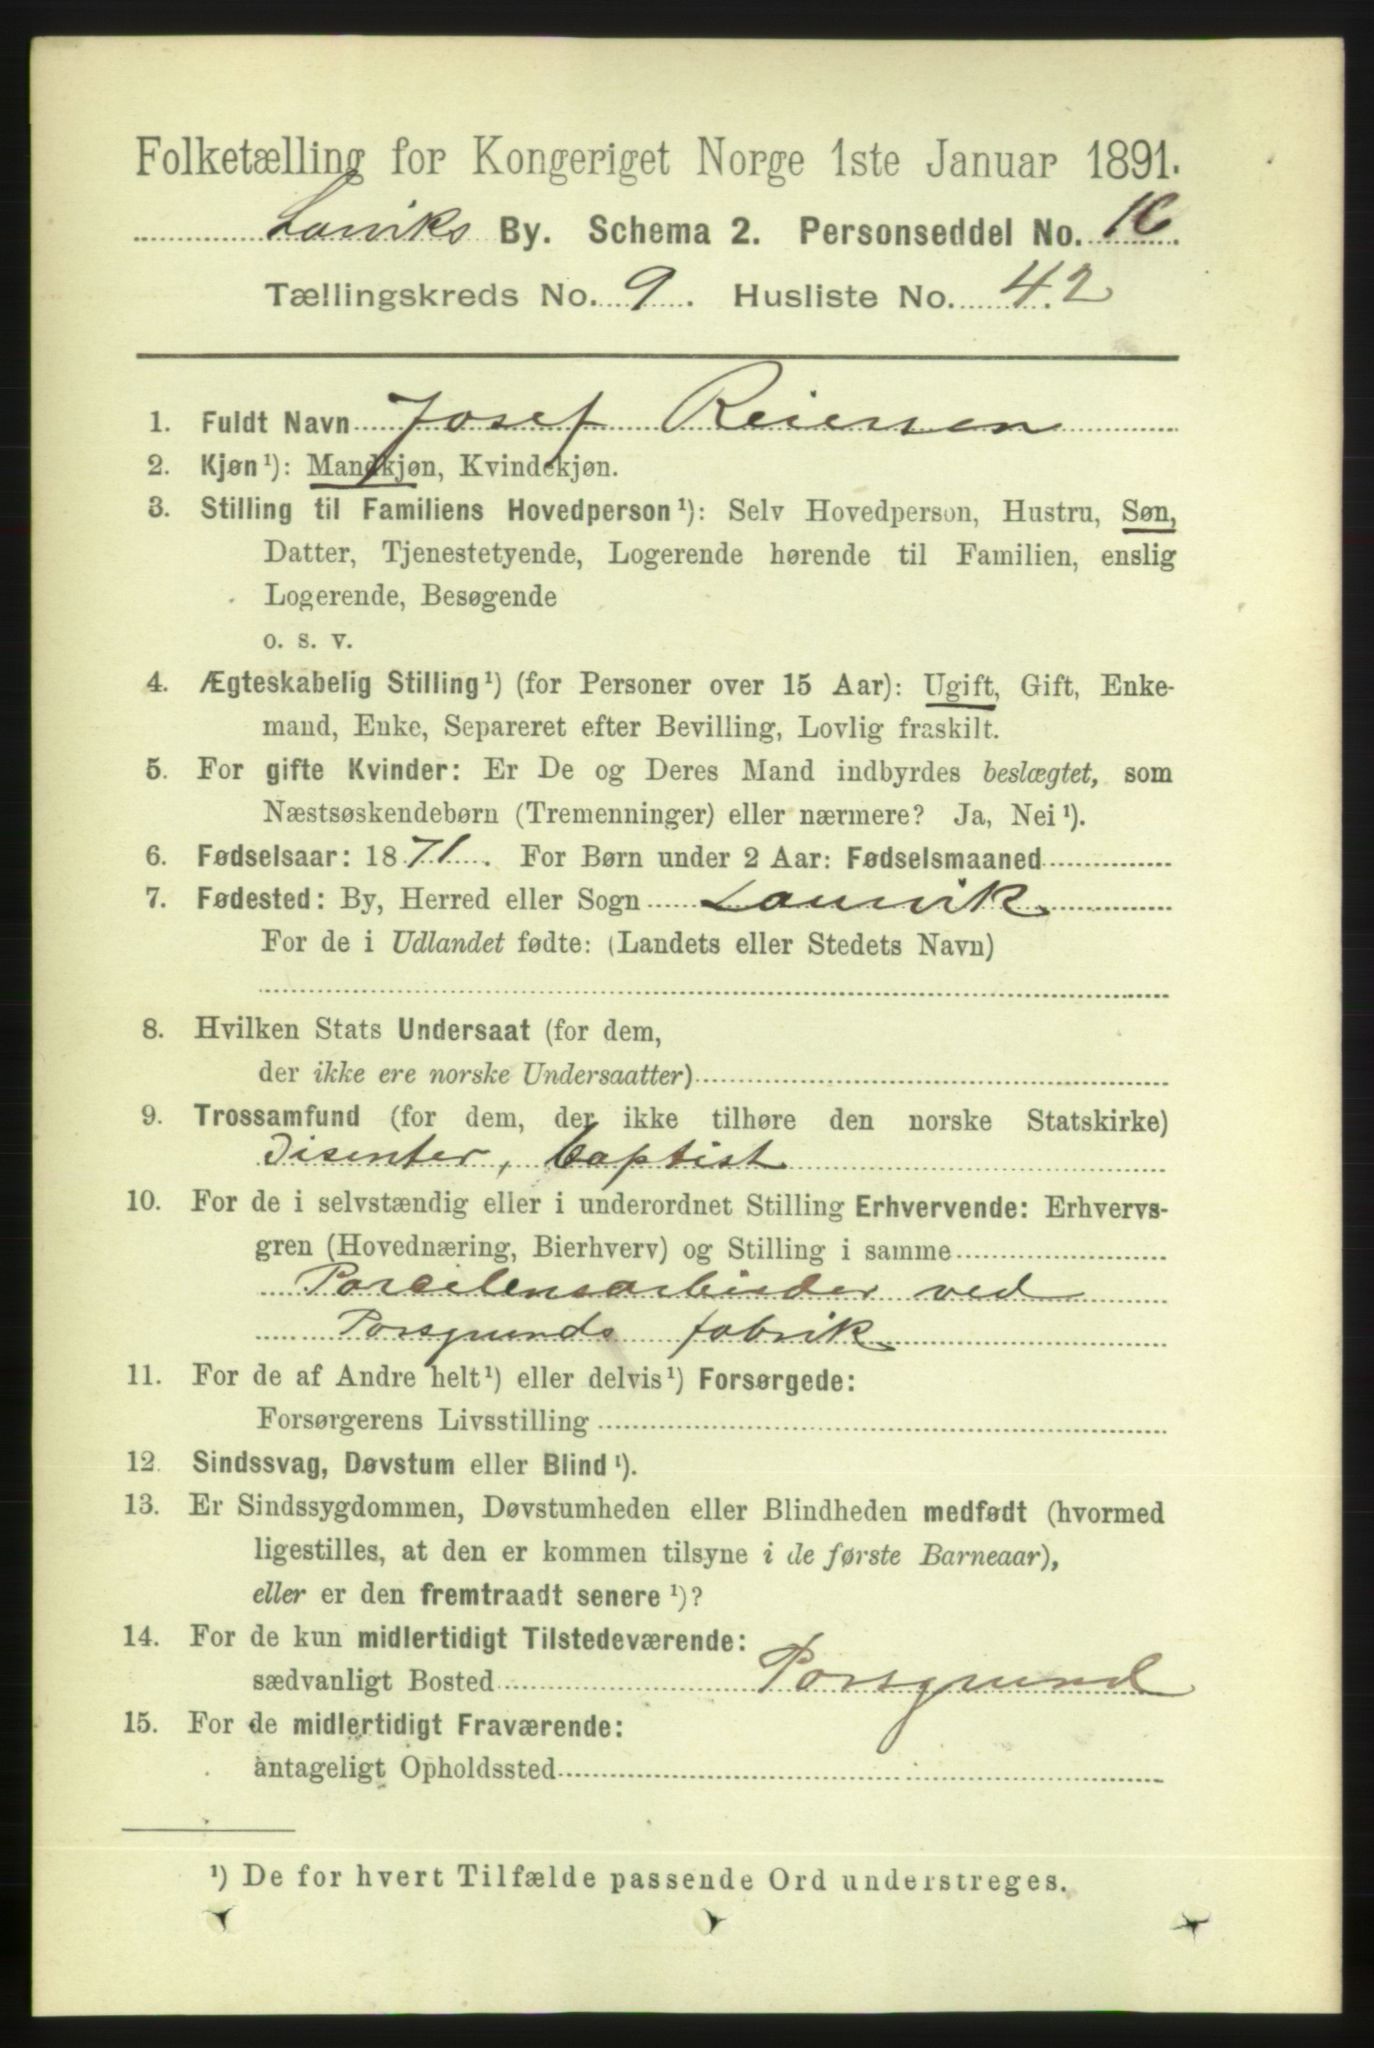 Folketælling for Kongeriget Norge 1ste Januar 1891.
Larviks By. Schema 2. Personseddel No. 16
Tællingskreds No. 9. Husliste No. 42
1. Fuldt Navn Josef Reiersen
2. Kjøn¹): Mandkjøn, Kvindekjøn.
3. Stilling til Familiens Hovedperson¹): Selv Hovedperson, Hustru, Søn,
Datter, Tjenestetyende, Logerende hørende til Familien, enslig
Logerende, Besøgende
o. s. v.
4. Ægteskabelig Stilling¹) (for Personer over 15 Aar): Ugift, Gift, Enke-
mand, Enke, Separeret efter Bevilling, Lovlig fraskilt.
5. For gifte Kvinder: Er De og Deres Mand indbyrdes beslægtet, som
Næstsøskendebørn (Tremenninger) eller nærmere? Ja, Nei¹).
6. Fødselsaar: 1871. For Børn under 2 Aar: Fødselsmaaned
7. Fødested: By, Herred eller Sogn Laurvik
For de i Udlandet fødte: (Landets eller Stedets Navn)
8. Hvilken Stats Undersaat (for dem,
der ikke ere norske Undersaatter)
9. Trossamfund (for dem, der ikke tilhøre den norske Statskirke)
Disenter, baptist
10. For de i selvstændig eller i underordnet Stilling Erhvervende: Erhvervs-
gren (Hovednæring, Bierhverv) og Stilling i samme
Porcelensarbeider ved
Porsgrunds fabrik
11. For de af Andre helt¹) eller delvis¹) Forsørgede:
Forsørgerens Livsstilling
12. Sindssvag, Døvstum eller Blind¹).
13. Er Sindssygdommen, Døvstumheden eller Blindheden medfødt (hvormed
ligestilles, at den er kommen tilsyne i de første Barneaar),
eller er den fremtraadt senere¹)?
14. For de kun midlertidigt Tilstedeværende:
sædvanligt Bosted Porsgrund
15. For de midlertidigt Fraværende:
antageligt Opholdssted
¹) De for hvert Tilfælde passende Ord understreges.